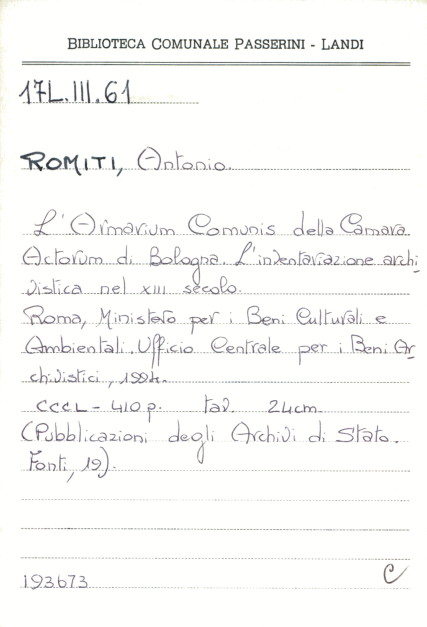 BIBLIOTECA COMUNALE PASSERINI - LANDI
17L.III.61
ROMITI, Antonio.
L'Armarium Comunis della Camara
Actorum di Bologna. L'inventariazione archi
vistica nel XIII secolo.
Roma, Ministero per i Beni Culturali e
Ambientali. Ufficio Centrale per i Beni Ar
chivistici, 1994.
CCCL - 410 p. tav. 24cm.
(Pubblicazioni degli Archivi di Stato.
Fonti, 19).
193673
C